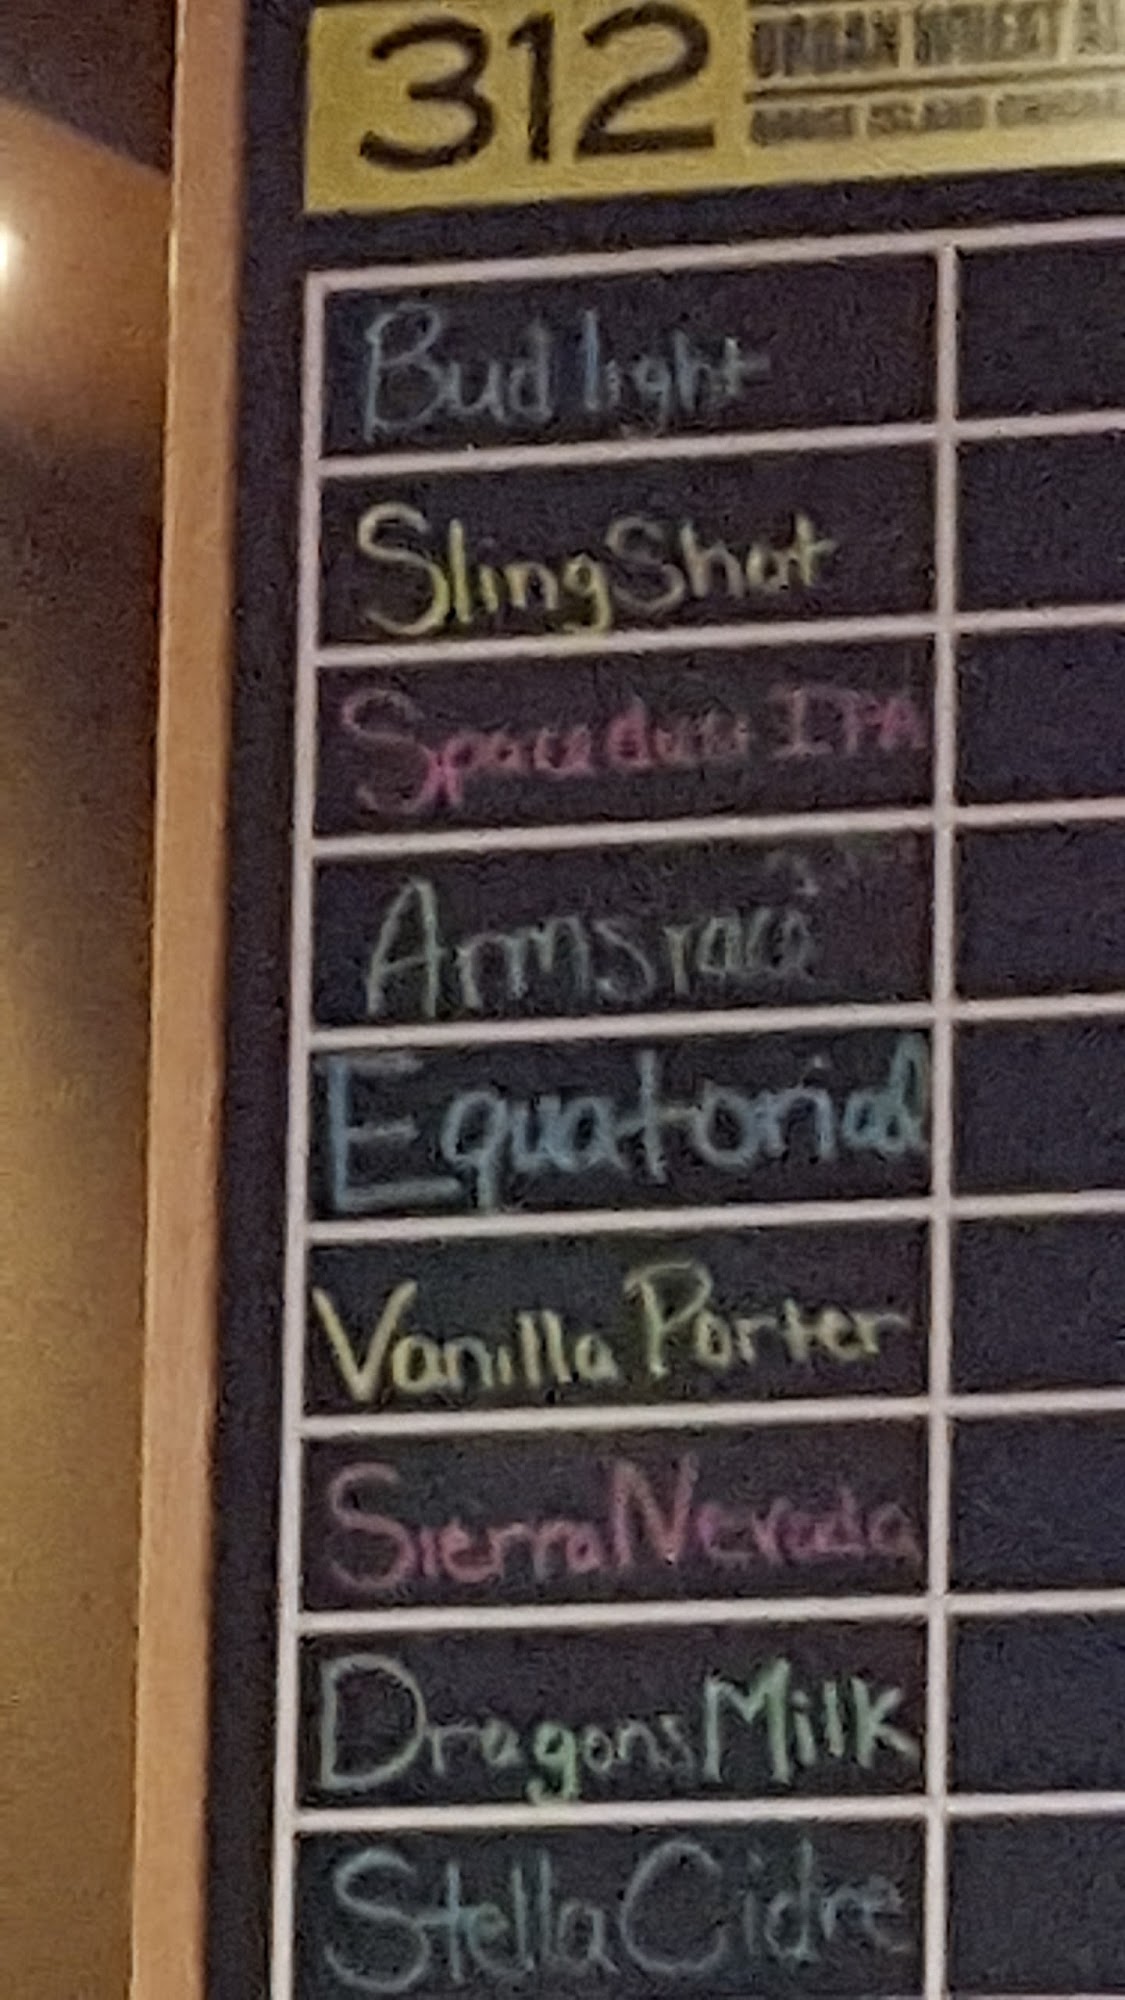 312
URBAN WHEAT AL
GOOSE ISLAND CHICAG
Bud light
SlingShot
Spacedust IPA
Armsrace
Equatorial
Vanilla Porter
Sierra Nevada
Dragons Milk
Stella Cidre